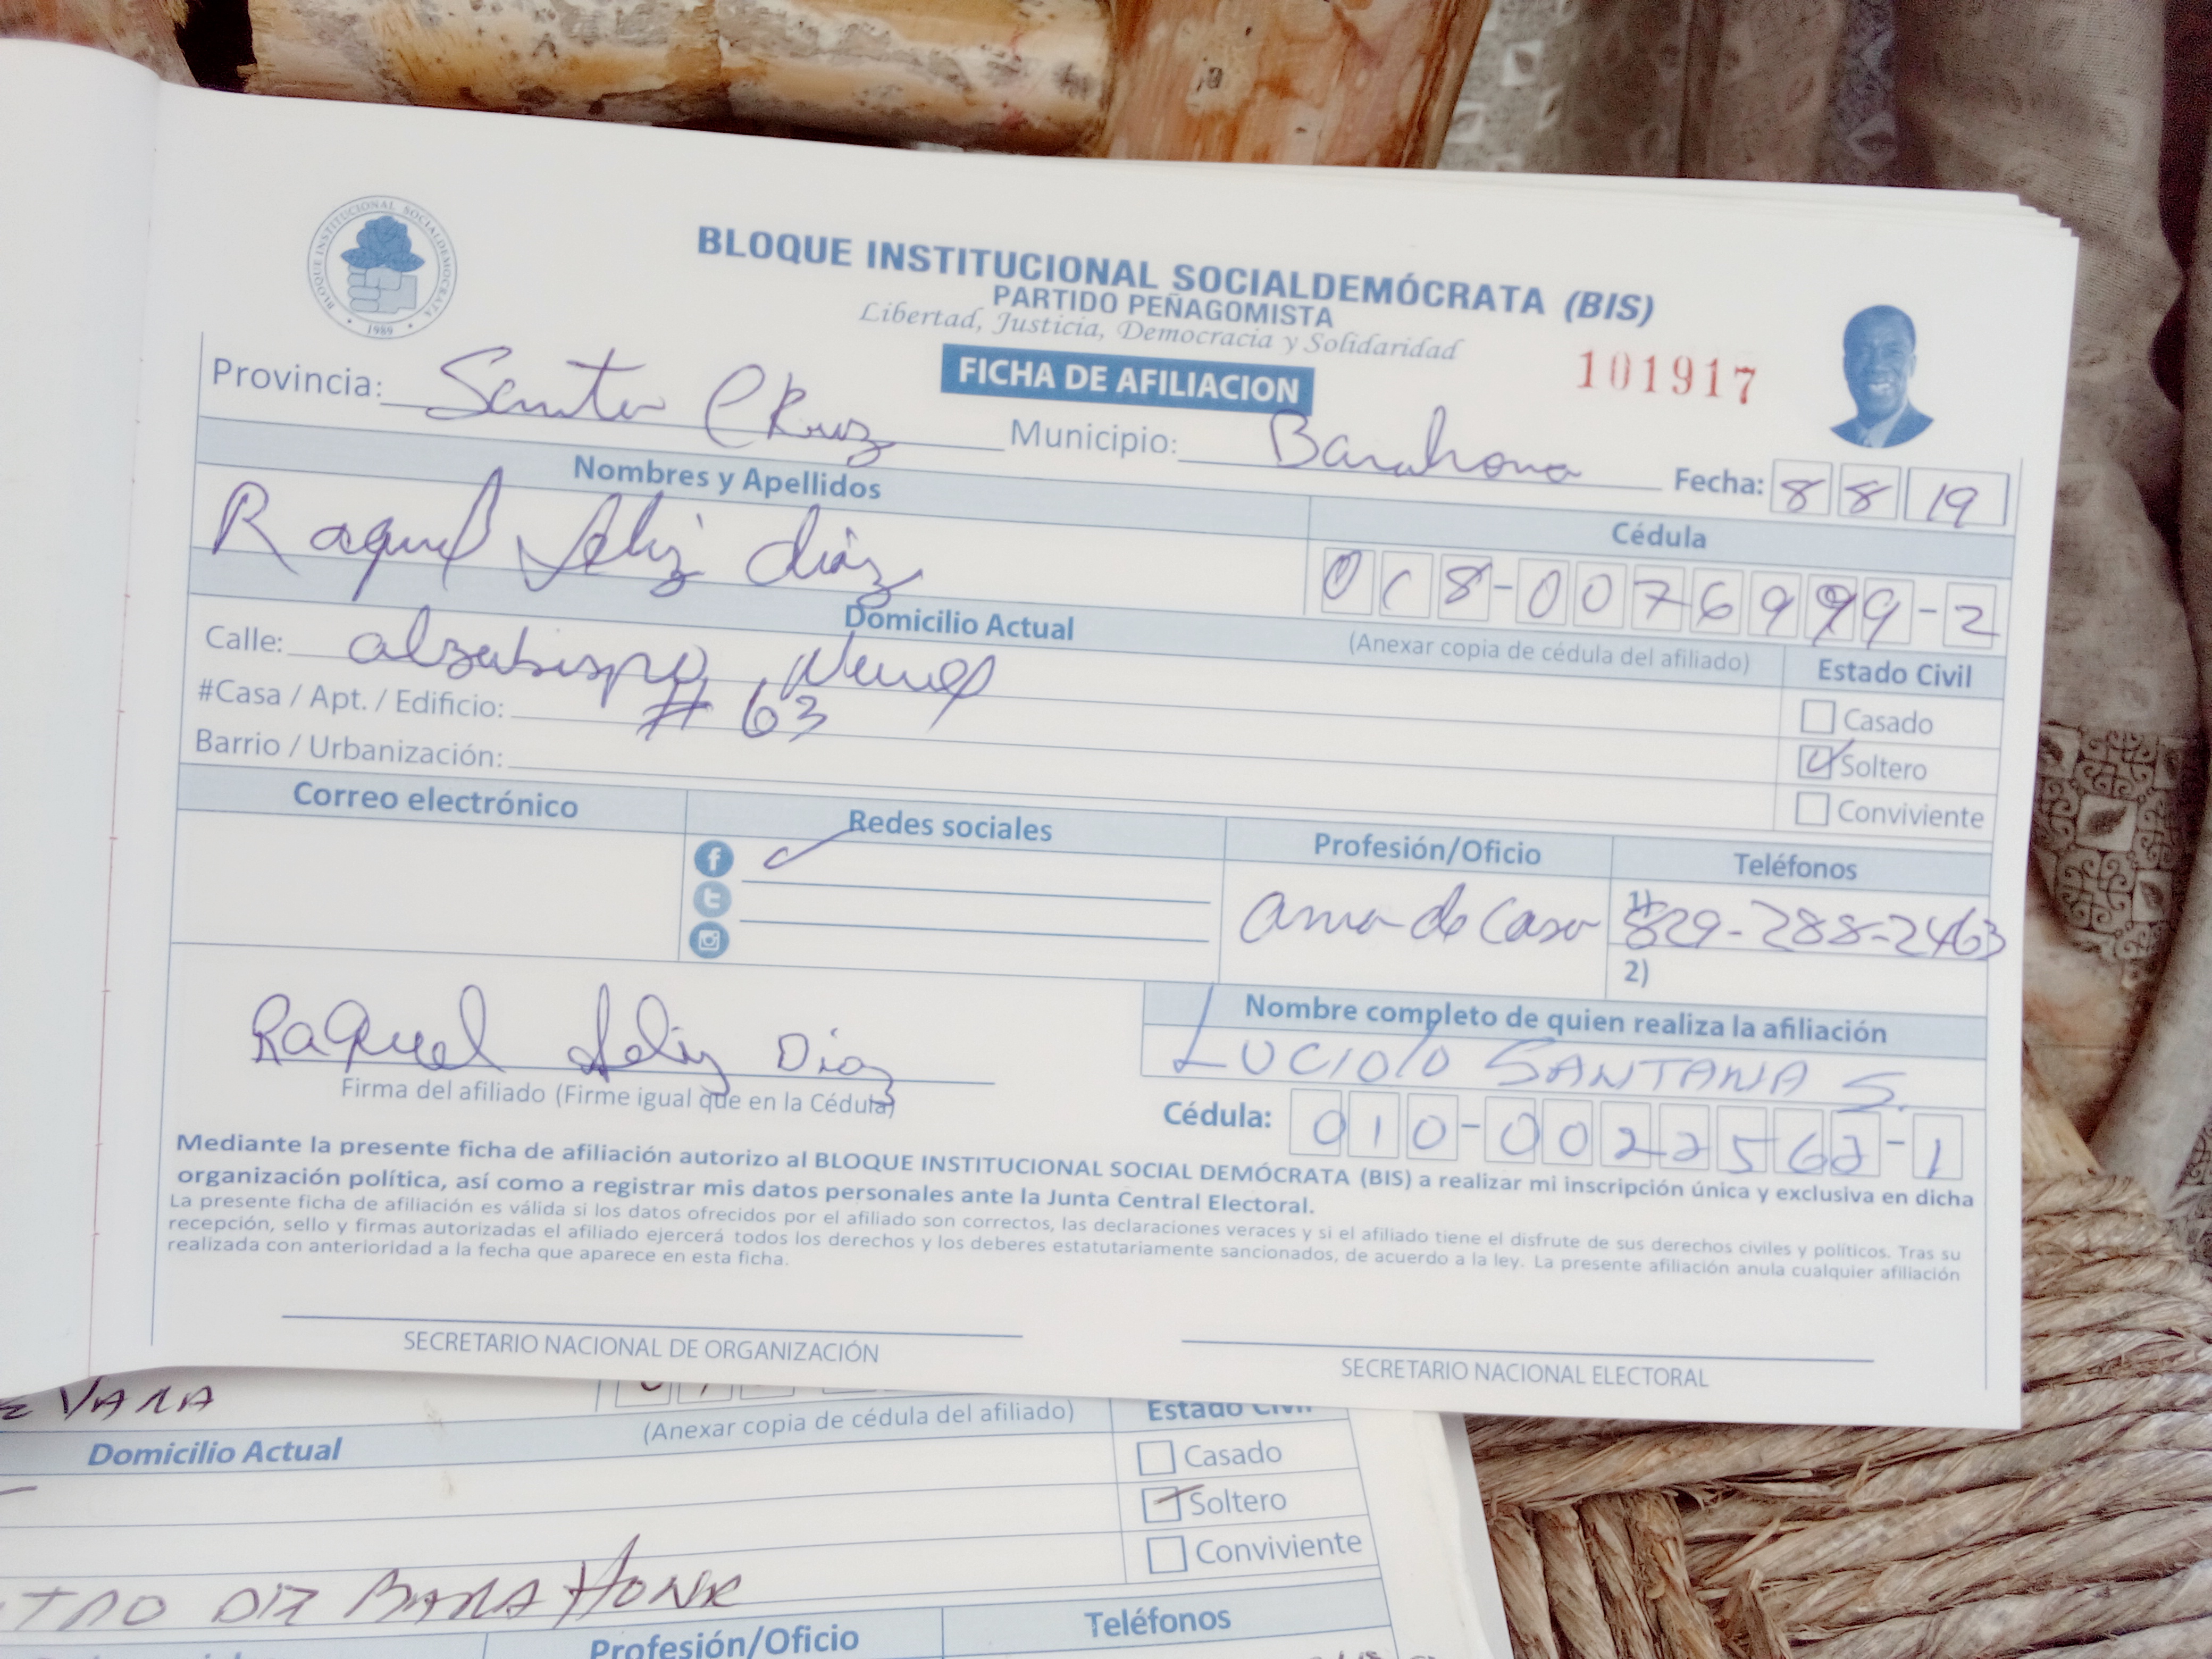 BLOQUE INSTITUCIONAL SOCIALDEMÓCRATA
1989
BLOQUE INSTITUCIONAL SOCIALDEMÓCRATA (BIS)
PARTIDO PEÑAGOMISTA
Libertad, Justicia, Democracia y Solidaridad
FICHA DE AFILIACION
101917
Provincia: Santa CRuz Municipio: Barahona Fecha: 8 8 19
Nombres y Apellidos
Cédula
Raquel feliz diaz
018-0076999-2
Domicilio Actual
(Anexar copia de cédula del afiliado)
Estado Civil
Calle: alzobispo Nuel
Casado
#Casa / Apt. / Edificio: # 63
Soltero
Barrio / Urbanización:
Conviviente
Correo electrónico
Redes sociales
Profesión/Oficio
Teléfonos
ama de casa
1) 829-288-2463
2)
Raquel feliz Diaz
Firma del afiliado (Firme igual que en la Cédula)
Nombre completo de quien realiza la afiliación
LUCIOLO SANTANA S.
Cédula: 010-0022562-1
Mediante la presente ficha de afiliación autorizo al BLOQUE INSTITUCIONAL SOCIAL DEMÓCRATA (BIS) a realizar mi inscripción única y exclusiva en dicha
organización política, así como a registrar mis datos personales ante la Junta Central Electoral.
La presente ficha de afiliación es válida si los datos ofrecidos por el afiliado son correctos, las declaraciones veraces y si el afiliado tiene el disfrute de sus derechos civiles y políticos. Tras su
recepción, sello y firmas autorizadas el afiliado ejercerá todos los derechos y los deberes estatutariamente sancionados, de acuerdo a la ley. La presente afiliación anula cualquier afiliación
realizada con anterioridad a la fecha que aparece en esta ficha.
SECRETARIO NACIONAL DE ORGANIZACIÓN
SECRETARIO NACIONAL ELECTORAL
(Anexar copia de cédula del afiliado)
Estado Civil
Domicilio Actual
Casado
Soltero
Conviviente
BARAHONA
Profesión/Oficio
Teléfonos